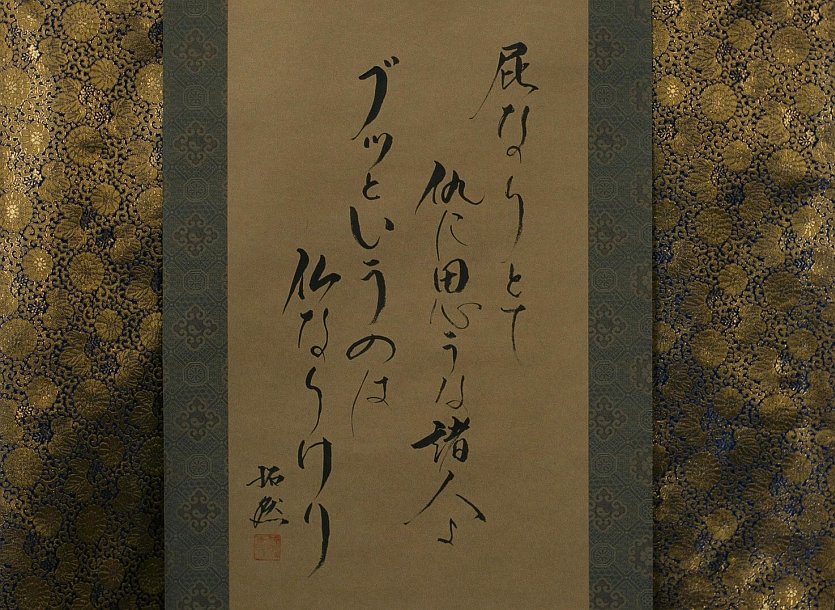 屁なりとて
仇に思うな諸人よ
ブッというのは
仏なりけり
拓然